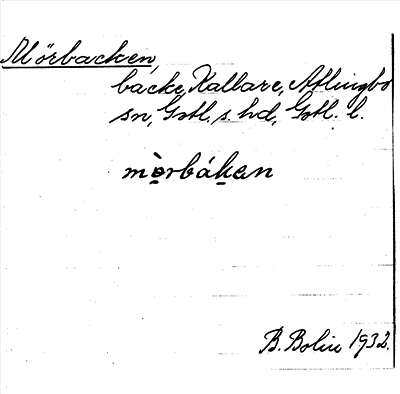 Mörbacken,
backe, Kallare, Atlingbo
sn, Gotl. s. hd, Gotl. l.
mə̀rbáken
B. Bolin 1932.